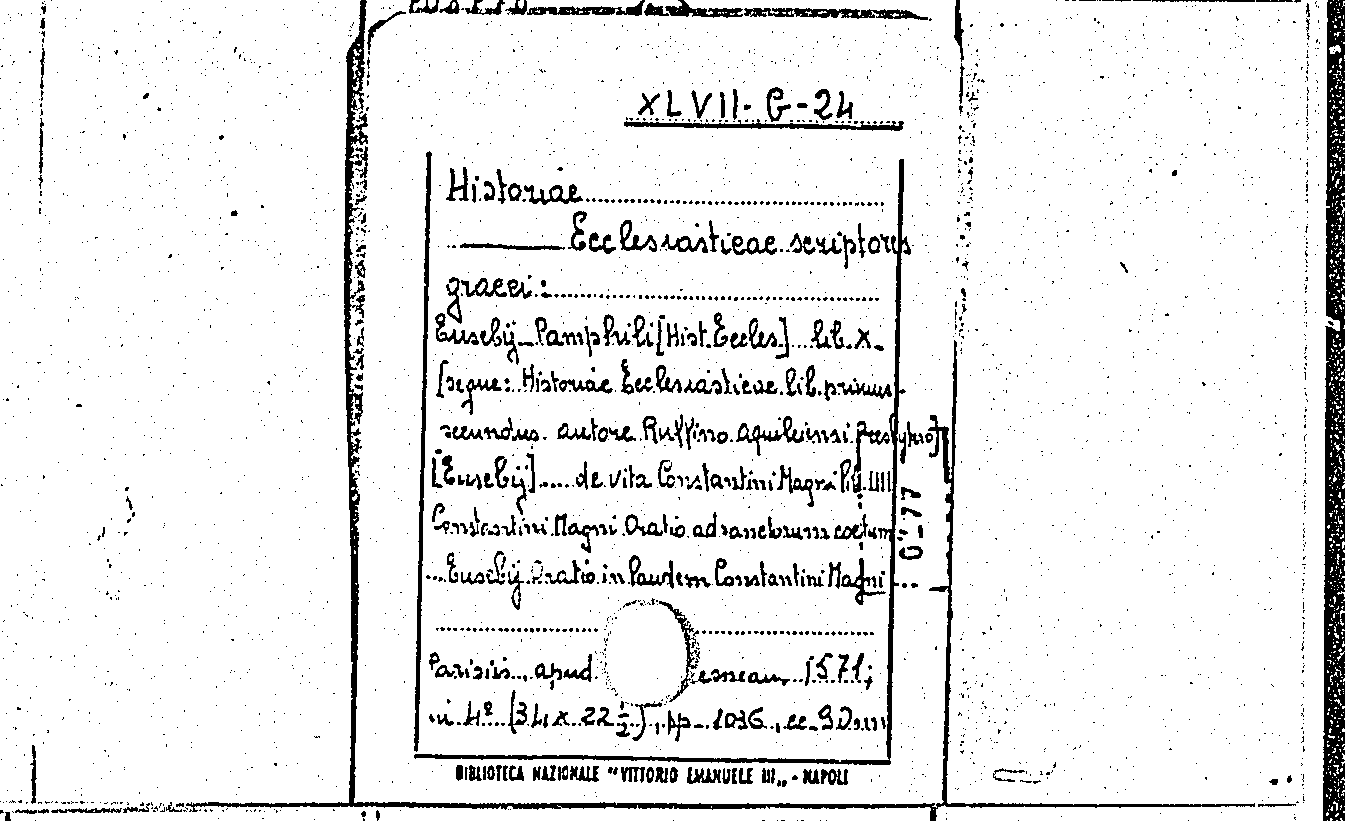 XLVII-G-24
Historiae
Ecclesiasticae scriptores
graeci:
Eusebij Pamphili [Hist. Eccles] lib. X.
[segue: Historiae Ecclesiasticae lib. primus-
secundus. autore Ruffino Aquileiensi Presbytero]
[Eusebij] ..... de vita Constantini Magni lib. IIII
Constantini Magni Oratio ad sanctorum coetum
... Eusebij Oratio in laudem Constantini Magni ...
0-77
Parisiis, apud 1571;
in 4º (34 x 22 ½), pp. 1036, cc.
BIBLIOTECA NAZIONALE "VITTORIO EMANUELE III„ - NAPOLI